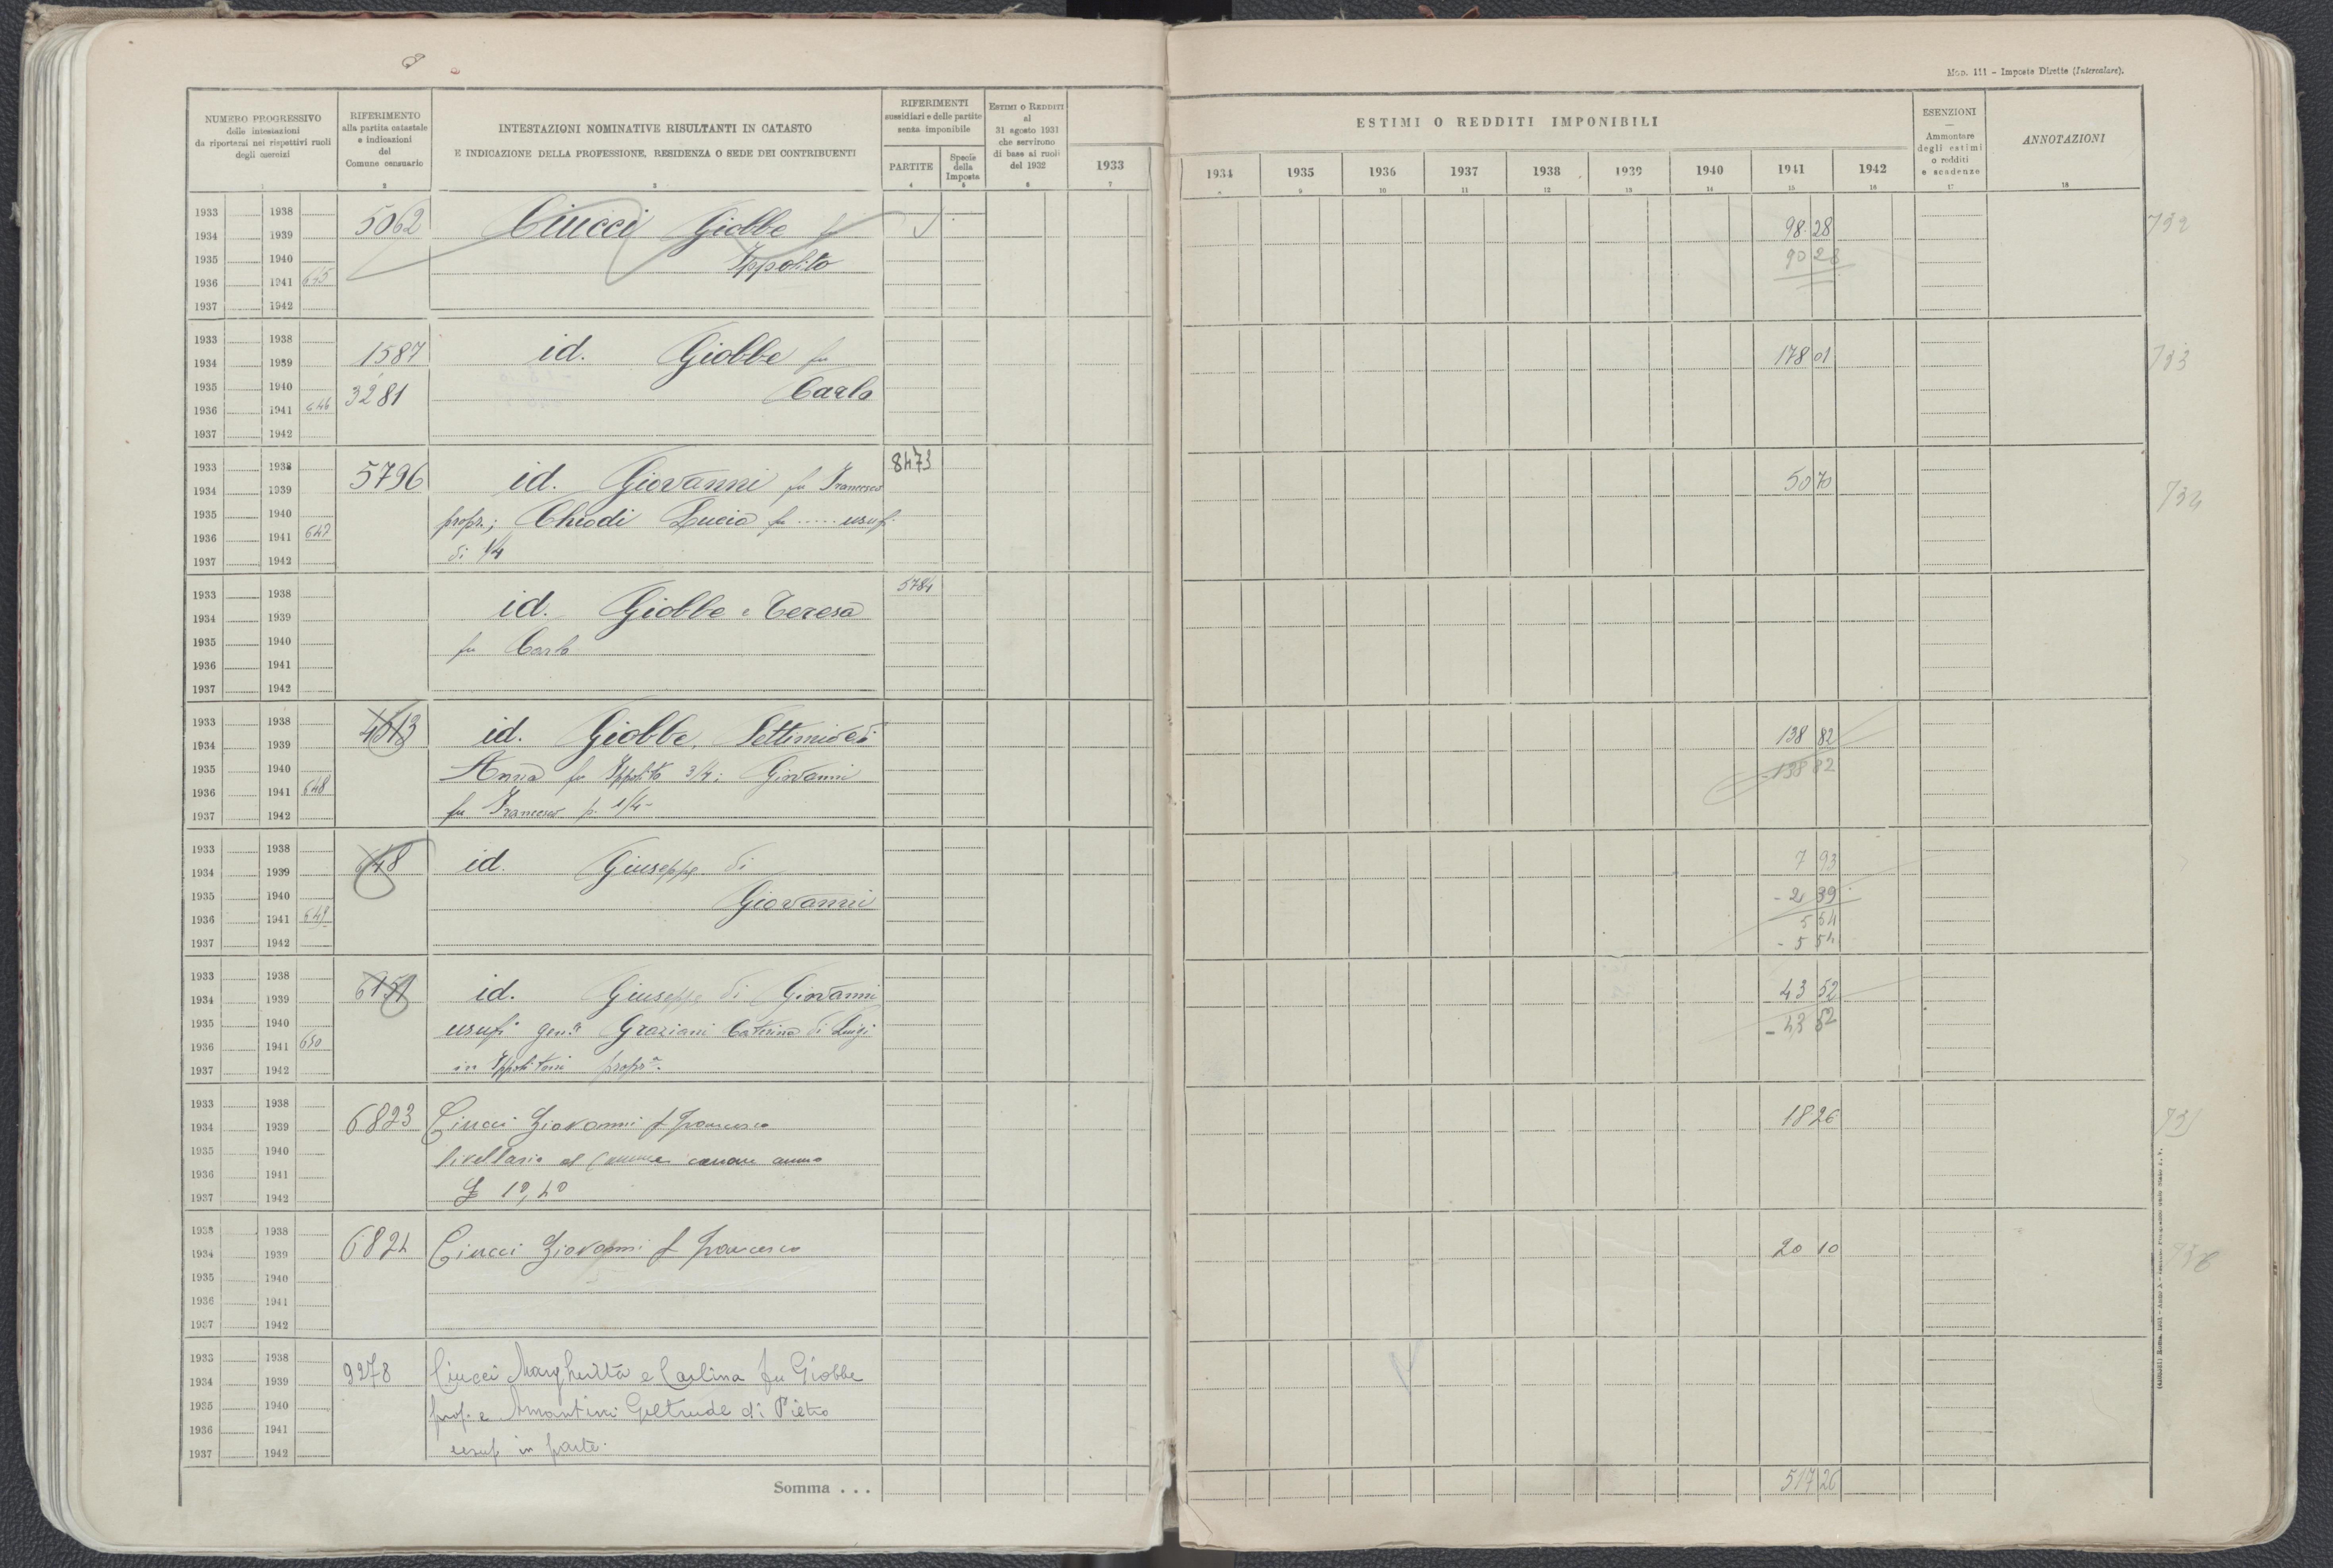 Mod. 111 - Imposte Dirette (Intercalare).
NUMERO PROGRESSIVO
delle intestazioni
da riportarsi nei rispettivi ruoli
degli esercizi
RIFERIMENTO
alla partita catastale
e indicazioni
del
Comune censuario
INTESTAZIONI NOMINATIVE RISULTANTI IN CATASTO
E INDICAZIONE DELLA PROFESSIONE, RESIDENZA O SEDE DEI CONTRIBUENTI
RIFERIMENTI
sussidiari e delle partite
senza imponibile
PARTITE
Specie
della
Imposta
ESTIMI O REDDITI
al
31 agosto 1931
che servirono
di base ai ruoli
del 1932
ESTIMI O REDDITI IMPONIBILI
1933 1934 1935 1936 1937 1938 1939 1940 1941 1942
ESENZIONI
—
Ammontare
degli estimi
o redditi
e scadenze
ANNOTAZIONI
1 2 3 4 5 6 7 8 9 10 11 12 13 14 15 16 17 18
1933 1938 5062 Ciucci Giobbe fu 98 28 732
1934 1939
1935 1940 Ippolito 90 28
1936 1941 645
1937 1942
1933 1938
1934 1939 1587 id. Giobbe fu 178 01 733
1935 1940 3281 Carlo
1936 1941 646
1937 1942
1933 1938 8473
1934 1939 5796 id. Giovanni fu Francesco 50 70 734
1935 1940 propr.; Chiodi Lucia fu ..... usuf.
1936 1941 647
1937 1942 di 1/4
1933 1938 5784
1934 1939 id. Giobbe e Teresa
1935 1940 fu Carlo
1936 1941
1937 1942
1933 1938
1934 1939 4513 id. Giobbe, Settimio ed 138 82
1935 1940 Anna fu Ippolito 3/4; Giovanni - 138 82
1936 1941 648
1937 1942 fu Francesco p. 1/4 -
1933 1938
1934 1939 648 id. Giuseppe di 7 93
1935 1940 Giovanni - 2 39
1936 1941 649 5 54
1937 1942 - 5 54
1933 1938
1934 1939 6151 id. Giuseppe di Giovanni 43 52
1935 1940 usufr. gen.le Graziani Caterina di Luigi - 43 52
1936 1941 650
1937 1942 in Ippolitoni propr.a
1933 1938
1934 1939 6823 Ciucci Giovanni f Francesco 18 26 735
1935 1940 livellario al Comune canone annuo
1936 1941
1937 1942 £ 10,40
1933 1938
1934 1939 6824 Ciucci Giovanni f Francesco 20 10 736
1935 1940
1936 1941
1937 1942
1933 1938
1934 1939 9278 Ciucci Margherita e Carlina fu Giobbe
1935 1940 prop. e Amantini Geltrude di Pietro
1936 1941
1937 1942 usuf. in parte.
Somma . . . 517 26